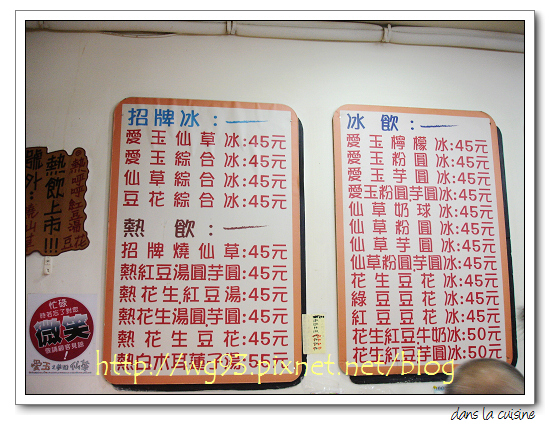 招牌冰:
愛玉仙草冰:45元
愛玉綜合冰:45元
仙草綜合冰:45元
豆花綜合冰:45元
熱飲:
招牌燒仙草:45元
熱紅豆湯圓芋圓:45元
熱花生.紅豆湯:45元
熱花生湯芋圓:45元
熱花生豆花:45元
熱白木耳蓮子湯:55元
冰飲:
愛玉檸檬冰:45元
愛玉粉圓冰:45元
愛玉芋圓冰:45元
愛玉粉圓芋圓冰:45元
仙草奶球冰:45元
仙草粉圓冰:45元
仙草芋圓冰:45元
仙草粉圓芋圓冰:45元
花生豆花冰:45元
綠豆豆花冰:45元
紅豆豆花冰:45元
花生紅豆牛奶冰:50元
花生紅豆芋圓冰:50元
熱呼呼紅豆湯
豆花
熱飲上市!!!
號外:
忙碌
時若忘了對您
微笑
敬請顧客見諒
愛玉之夢遊仙草
http://wg93.pixnet.net/blog
dans la cuisine